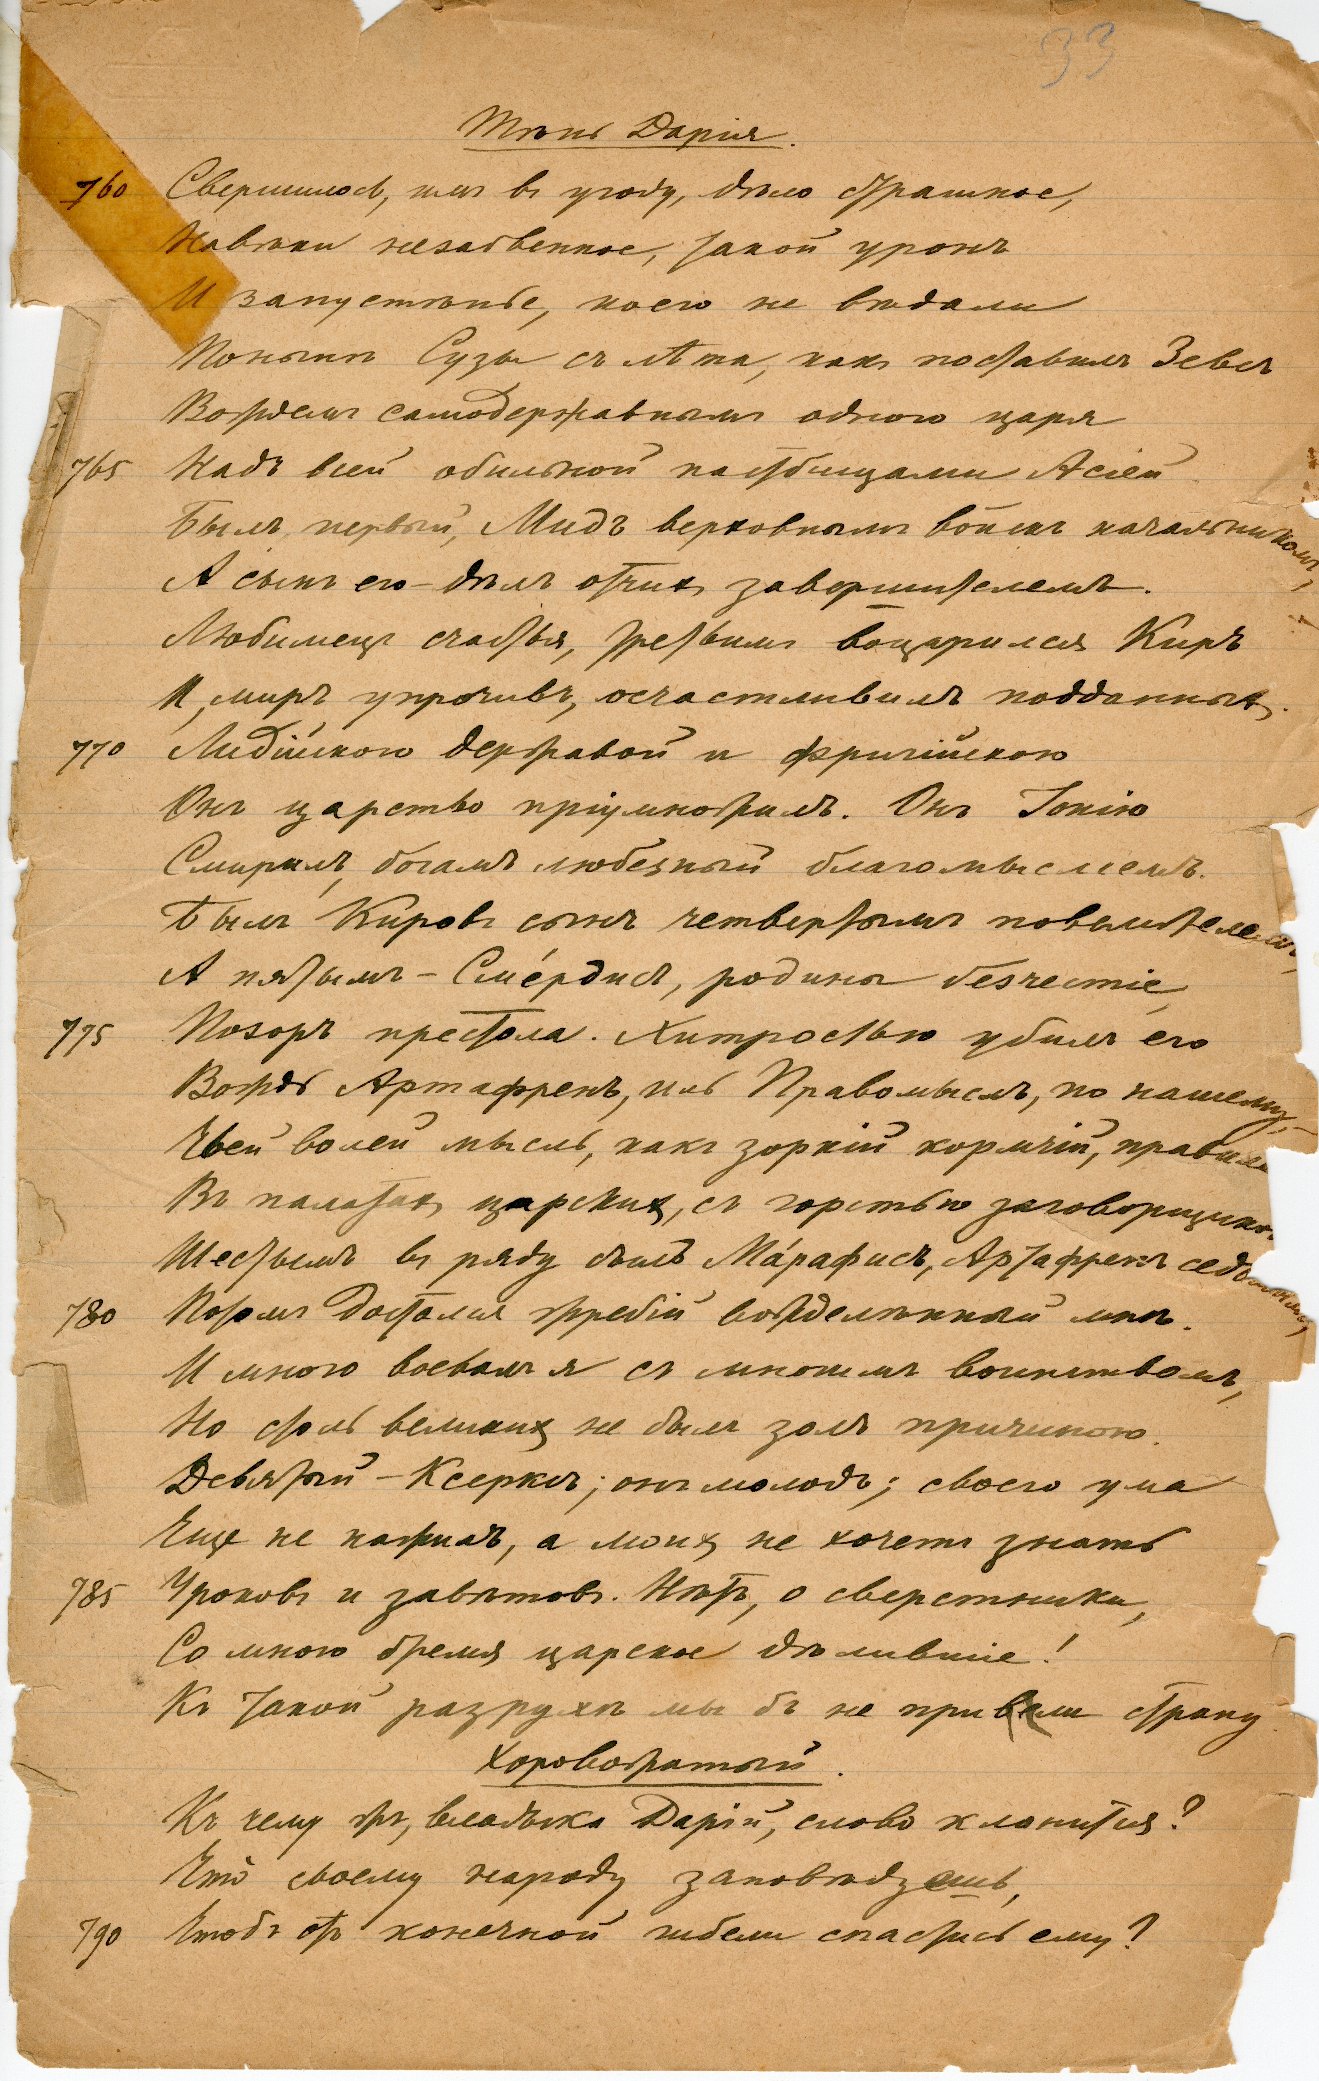 33
Тѣнь Дарія.
760 Свершилось, имъ въ угоду, дѣло страшное,
Навѣки незабвенное, такой уронъ
И запустѣнье, коего не видали
Понынѣ Сузы съ лѣта, какъ поставилъ Зевсъ
Вождемъ самодержавнымъ одного царя
765 Надъ всей обильной пастбищами Асіей.
Былъ первый, Мидъ верховнымъ войскъ начальникомъ,
А сынъ его – дѣлъ отчихъ завершителемъ.
Любимецъ счастья, третьимъ воцарился Киръ
И, миръ упрочивъ, осчастливилъ подданныхъ.
770 Лидійскою державой и фригійскою
Онъ царство пріумножилъ. Онъ Іонію
Смирилъ, богамъ любезный благомысліемъ.
Былъ Кировъ сынъ четвертымъ повелителемъ,
А пятымъ – Сме́рдисъ, родины безчестіе,
775 Позоръ престола. Хитростью убилъ его
Вождь Артафренъ, иль Правомыслъ, по нашему, –
Чьей волей мысль, какъ зоркій кормчій, правила
Въ палатахъ царскихъ, съ горстью заговорщиковъ.
Шестымъ въ ряду былъ Ма́рафисъ, Артафренъ седьмымъ,
780 Потомъ достался жребій вожделѣнный мнѣ.
И много воевалъ я съ многимъ воинствомъ,
Но столь великихъ не былъ золъ причиною.
Девятый – Ксерксъ; онъ молодъ; своего ума
Еще не нажилъ, а моихъ не хочетъ знать
785 Уроковъ и завѣтовъ. Нѣтъ, о сверстники,
Со мною бремя царское дѣлившіе!
Къ такой разрухѣ мы бъ не привели страну.
Хоровожатый.
Къ чему жъ, владыка Дарій, слово клонится?
Что́ своему народу заповѣдуешь,
790 Чтобъ отъ конечной гибели спастись ему?